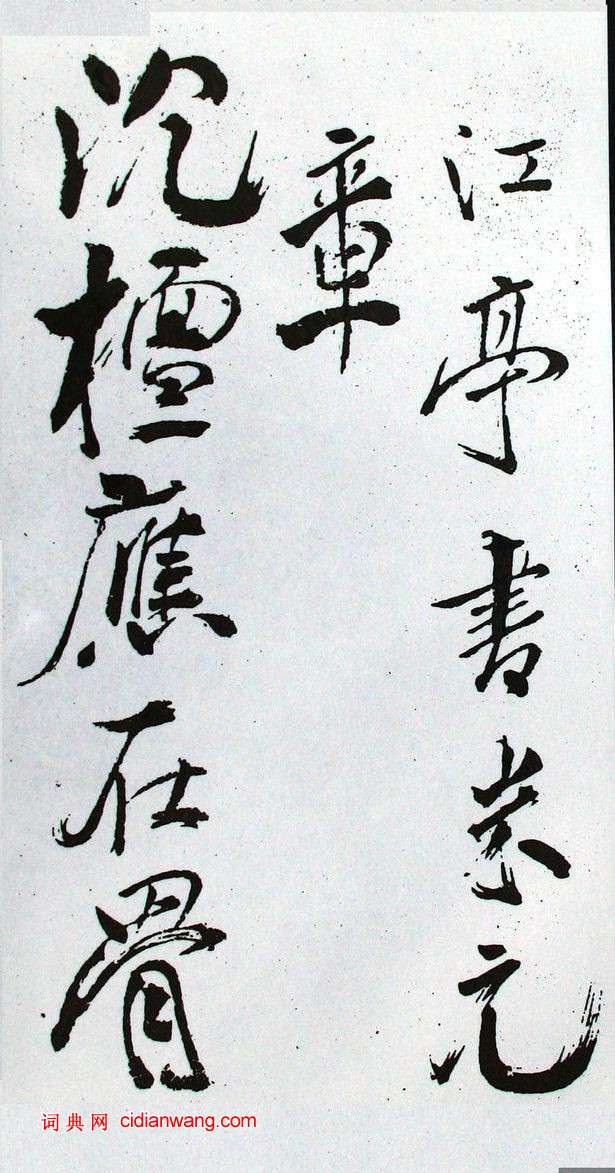 江亭書元
章
沉檀應在骨
词典网 cidianwang.com